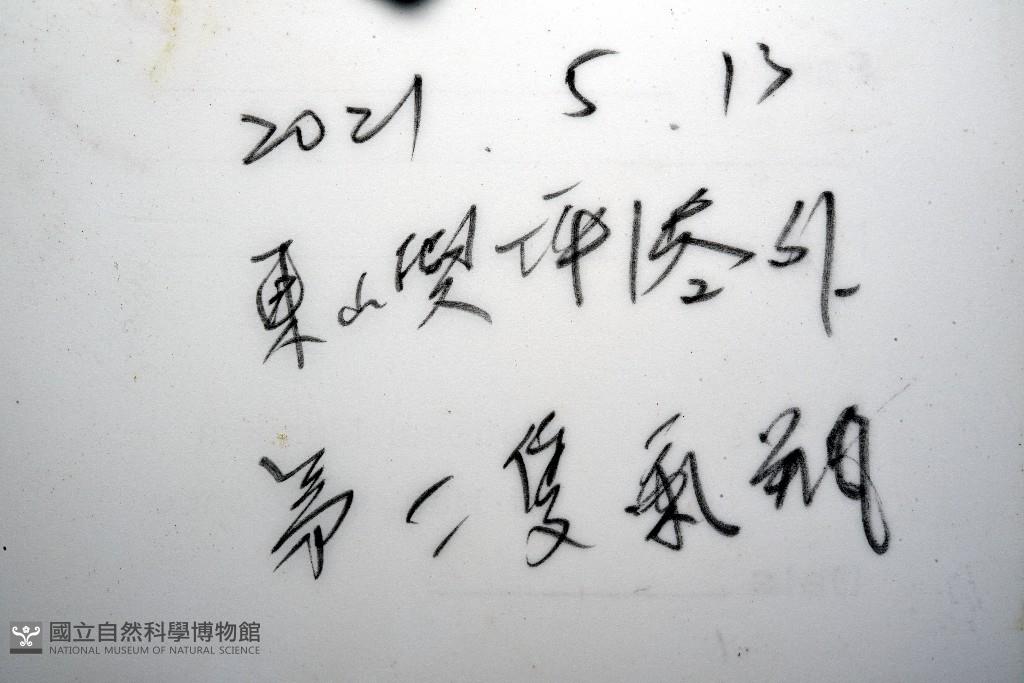 2021. 5. 13
東嶼坪港外
第二隻氣瓶
國立自然科學博物館
NATIONAL MUSEUM OF NATURAL SCIENCE